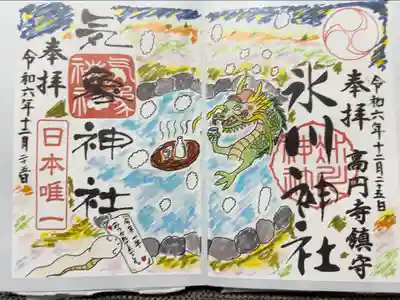 令和六年十二月二五日
奉拝
高円寺鎮守
氷川神社
気象神社
奉拝
日本唯一
令和六年十二月二五日
今年一年